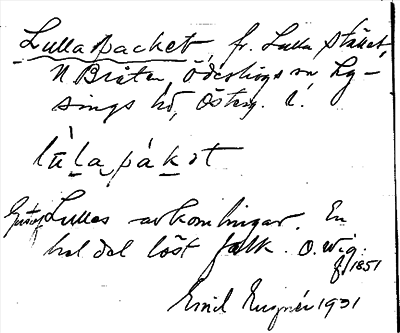 Lullapacket, fr. Lulla stället,
N Bråten, Ödeshögs sn Ly-
sings hd, Österg. l.
lù̄la pákət
Gustaf Lulles avkomlingar. En
hel del löst folk. O. Wig.
f. 1851
Emil 1931